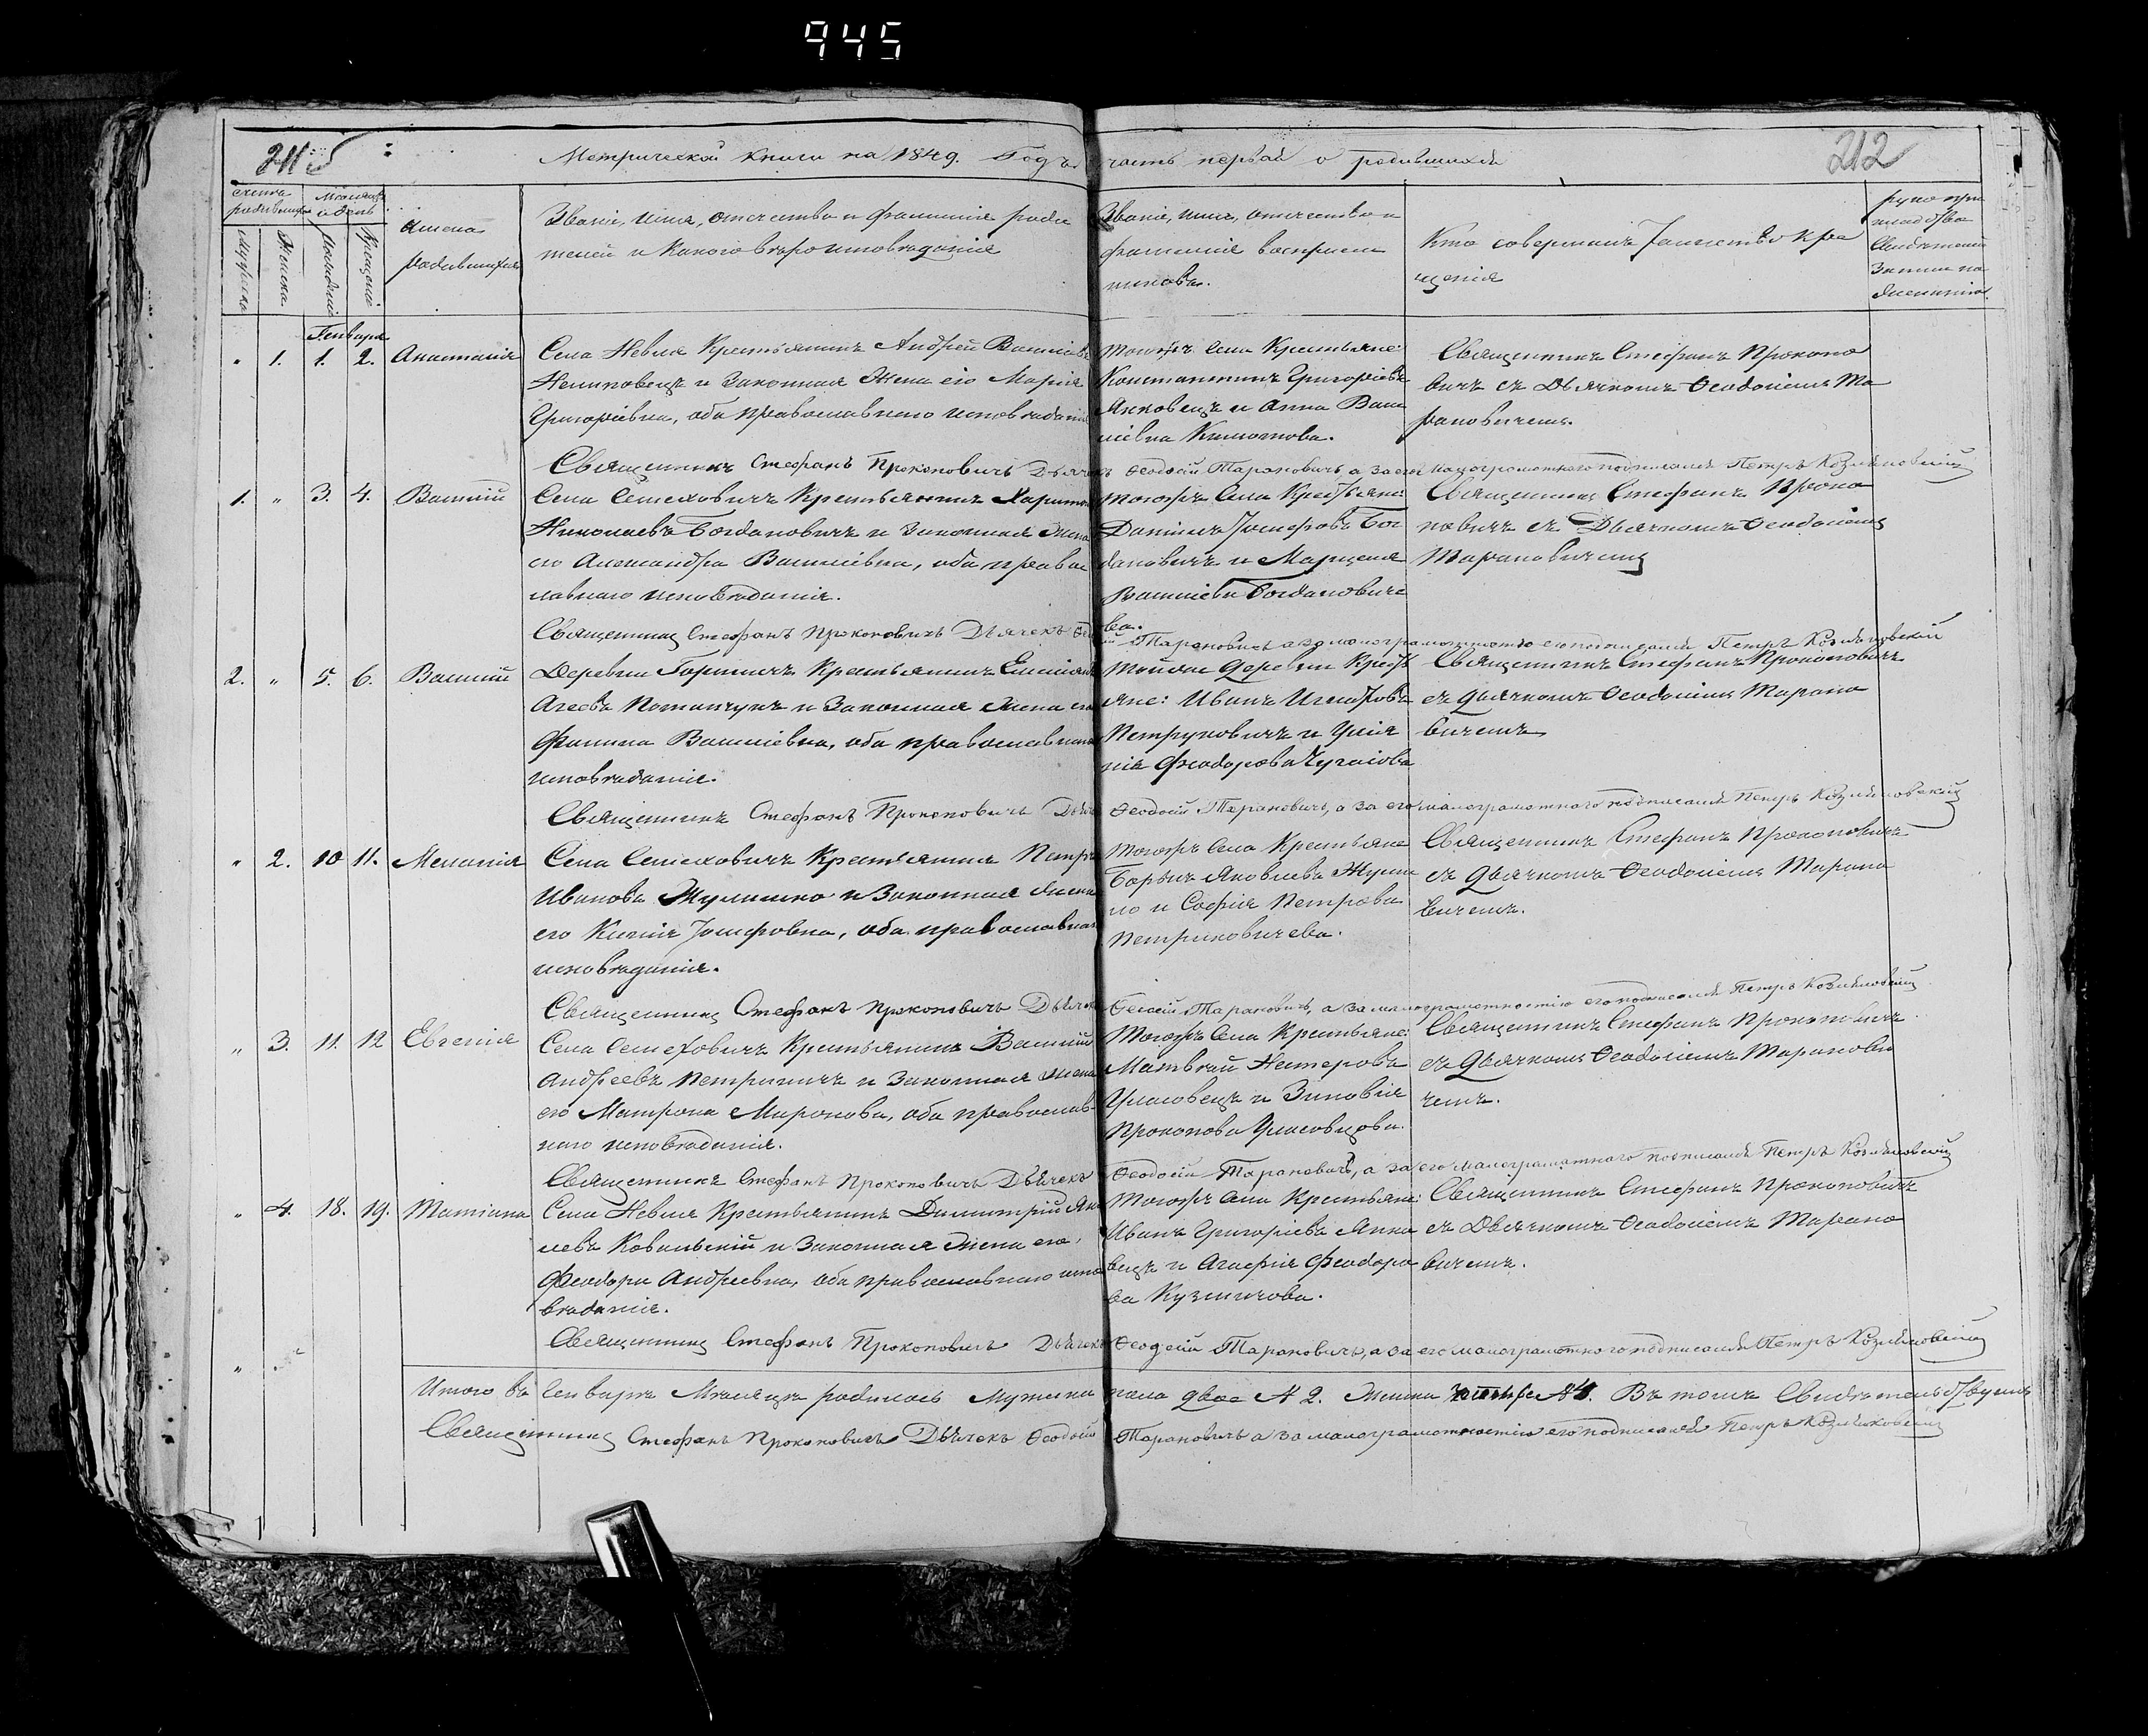 945
211
212
Метрической книги на 1849. Годъ часть первая о родившихся
счетъ родившихся
Мужеска
Женска
Месяцъ и день
Рожденія
Крещенія
Имена родившихся
Званіе, имя, отечество и фамилія роди
телей и какого вероисповеданія
Званіе, имя, отечество и
фамилія воспріем
никовъ.
Кто совершилъ Таинство кре
щенія
руко при
кладство
Свидетелей
записи по
желанію
Генваря
" 1. 1. 2. Анастасія
Села Невля Крестьянинъ Андрей Василіевъ
и законная жена его Марія
Григоріевна, оба православнаго исповеданія
Тогожъ села Крестьяне:
Константинъ Григоріевъ
Янковецъ и Анна Васи
ліевна
Священникъ Стефанъ Прокопо
вичъ съ Дьячкомъ Ѳеодосіемъ Та
рановичемъ.
Священникъ Стефанъ Прокоповичъ Дьячекъ Ѳеодосій Тарановичъ а за его малограмотнаго подписался Петръ
1. " 3. 4. Василій
Села Семеховичъ Крестьянинъ Харитонъ
Николаевъ Богдановичъ и законная жена
его Александра Василіевна, оба правос
лавнаго исповеданія.
Тогожъ Села Крестьяне:
Даніилъ Іосифовъ Бог
дановичъ и
Василіева Богдановиче
ва.
Священникъ Стефанъ Проко
повичъ съ Дьячкомъ Ѳеодосіемъ
Тарановичемъ
Священникъ Стефанъ Прокоповичъ Дьячекъ Ѳеодосій Тарановичъ а за малограмотностію его подписался Петръ
2. " 5. 6. Василій
Деревни Горыничъ Крестьянинъ Емиліанъ
Агеевъ Потапчукъ и законная жена его
Василіевна, оба православнаго
исповеданія.
Тойже деревни Кресть
яне: Иванъ Игнатовъ
Петруковичъ и
Феодорова
Священникъ Стефанъ Прокоповичъ
съ Дьячкомъ Ѳеодосіемъ Тарано
вичемъ
Священникъ Стефанъ Прокоповичъ Дьячекъ Ѳеодосій Тарановичъ, а за его малограмотнаго подписался Петръ
" 2. 10 11. Меланія
Села Семеховичъ Крестьянинъ Петръ
Ивановъ и законная жена
его Іосифовна, оба православнаго
исповеданія.
Тогожъ села Крестьяне
Борысъ Яковлевъ
и Софія Петрова
Петриковичева.
Священникъ Стефанъ Прокоповичъ
съ Дьячкомъ Ѳеодосіемъ Тарано
вичемъ.
Священникъ Стефанъ Прокоповичъ Дьячекъ Ѳеодосій Тарановичъ, а за малограмотностію его подписался Петръ
" 3. 11. 12 Евгенія
Села Семеховичъ Крестьянинъ Василій
Андреевъ и законная жена
его Матрона Миронова, оба православ
наго исповеданія.
Тогожъ Села Крестьяне:
Матвей Нестеровъ
и Зиновія
Прокопова
Священникъ Стефанъ Прокоповичъ
съ Дьячкомъ Ѳеодосіемъ Таранови
чемъ.
Священникъ Стефанъ Прокоповичъ Дьячекъ Ѳеодосій Тарановичъ, а за его малограмотнаго подписался Петръ
" 4. 18. 19. Татіана
Села Невля Крестьянинъ Димитрій
Ковальскій и законная жена его
Феодора Андреевна, оба православнаго испо
веданія.
Тогожъ села Крестьяне:
Иванъ Григоріевъ Янко
вецъ и Агафія Феодоро
ва Кузмичова.
Священникъ Стефанъ Прокоповичъ
съ Дьячкомъ Ѳеодосіемъ Тарано
вичемъ.
Священникъ Стефанъ Прокоповичъ Дьячекъ Ѳеодосій Тарановичъ, а за его малограмотнаго подписался Петръ
Итого въ Генваре Месяце родилось Мужеска пола двое № 2. Женска № 4. Въ томъ Свидетельствуемъ
Священникъ Стефанъ Прокоповичъ Дьячекъ Ѳеодосій Тарановичъ а за малограмотностію его подписался Петръ